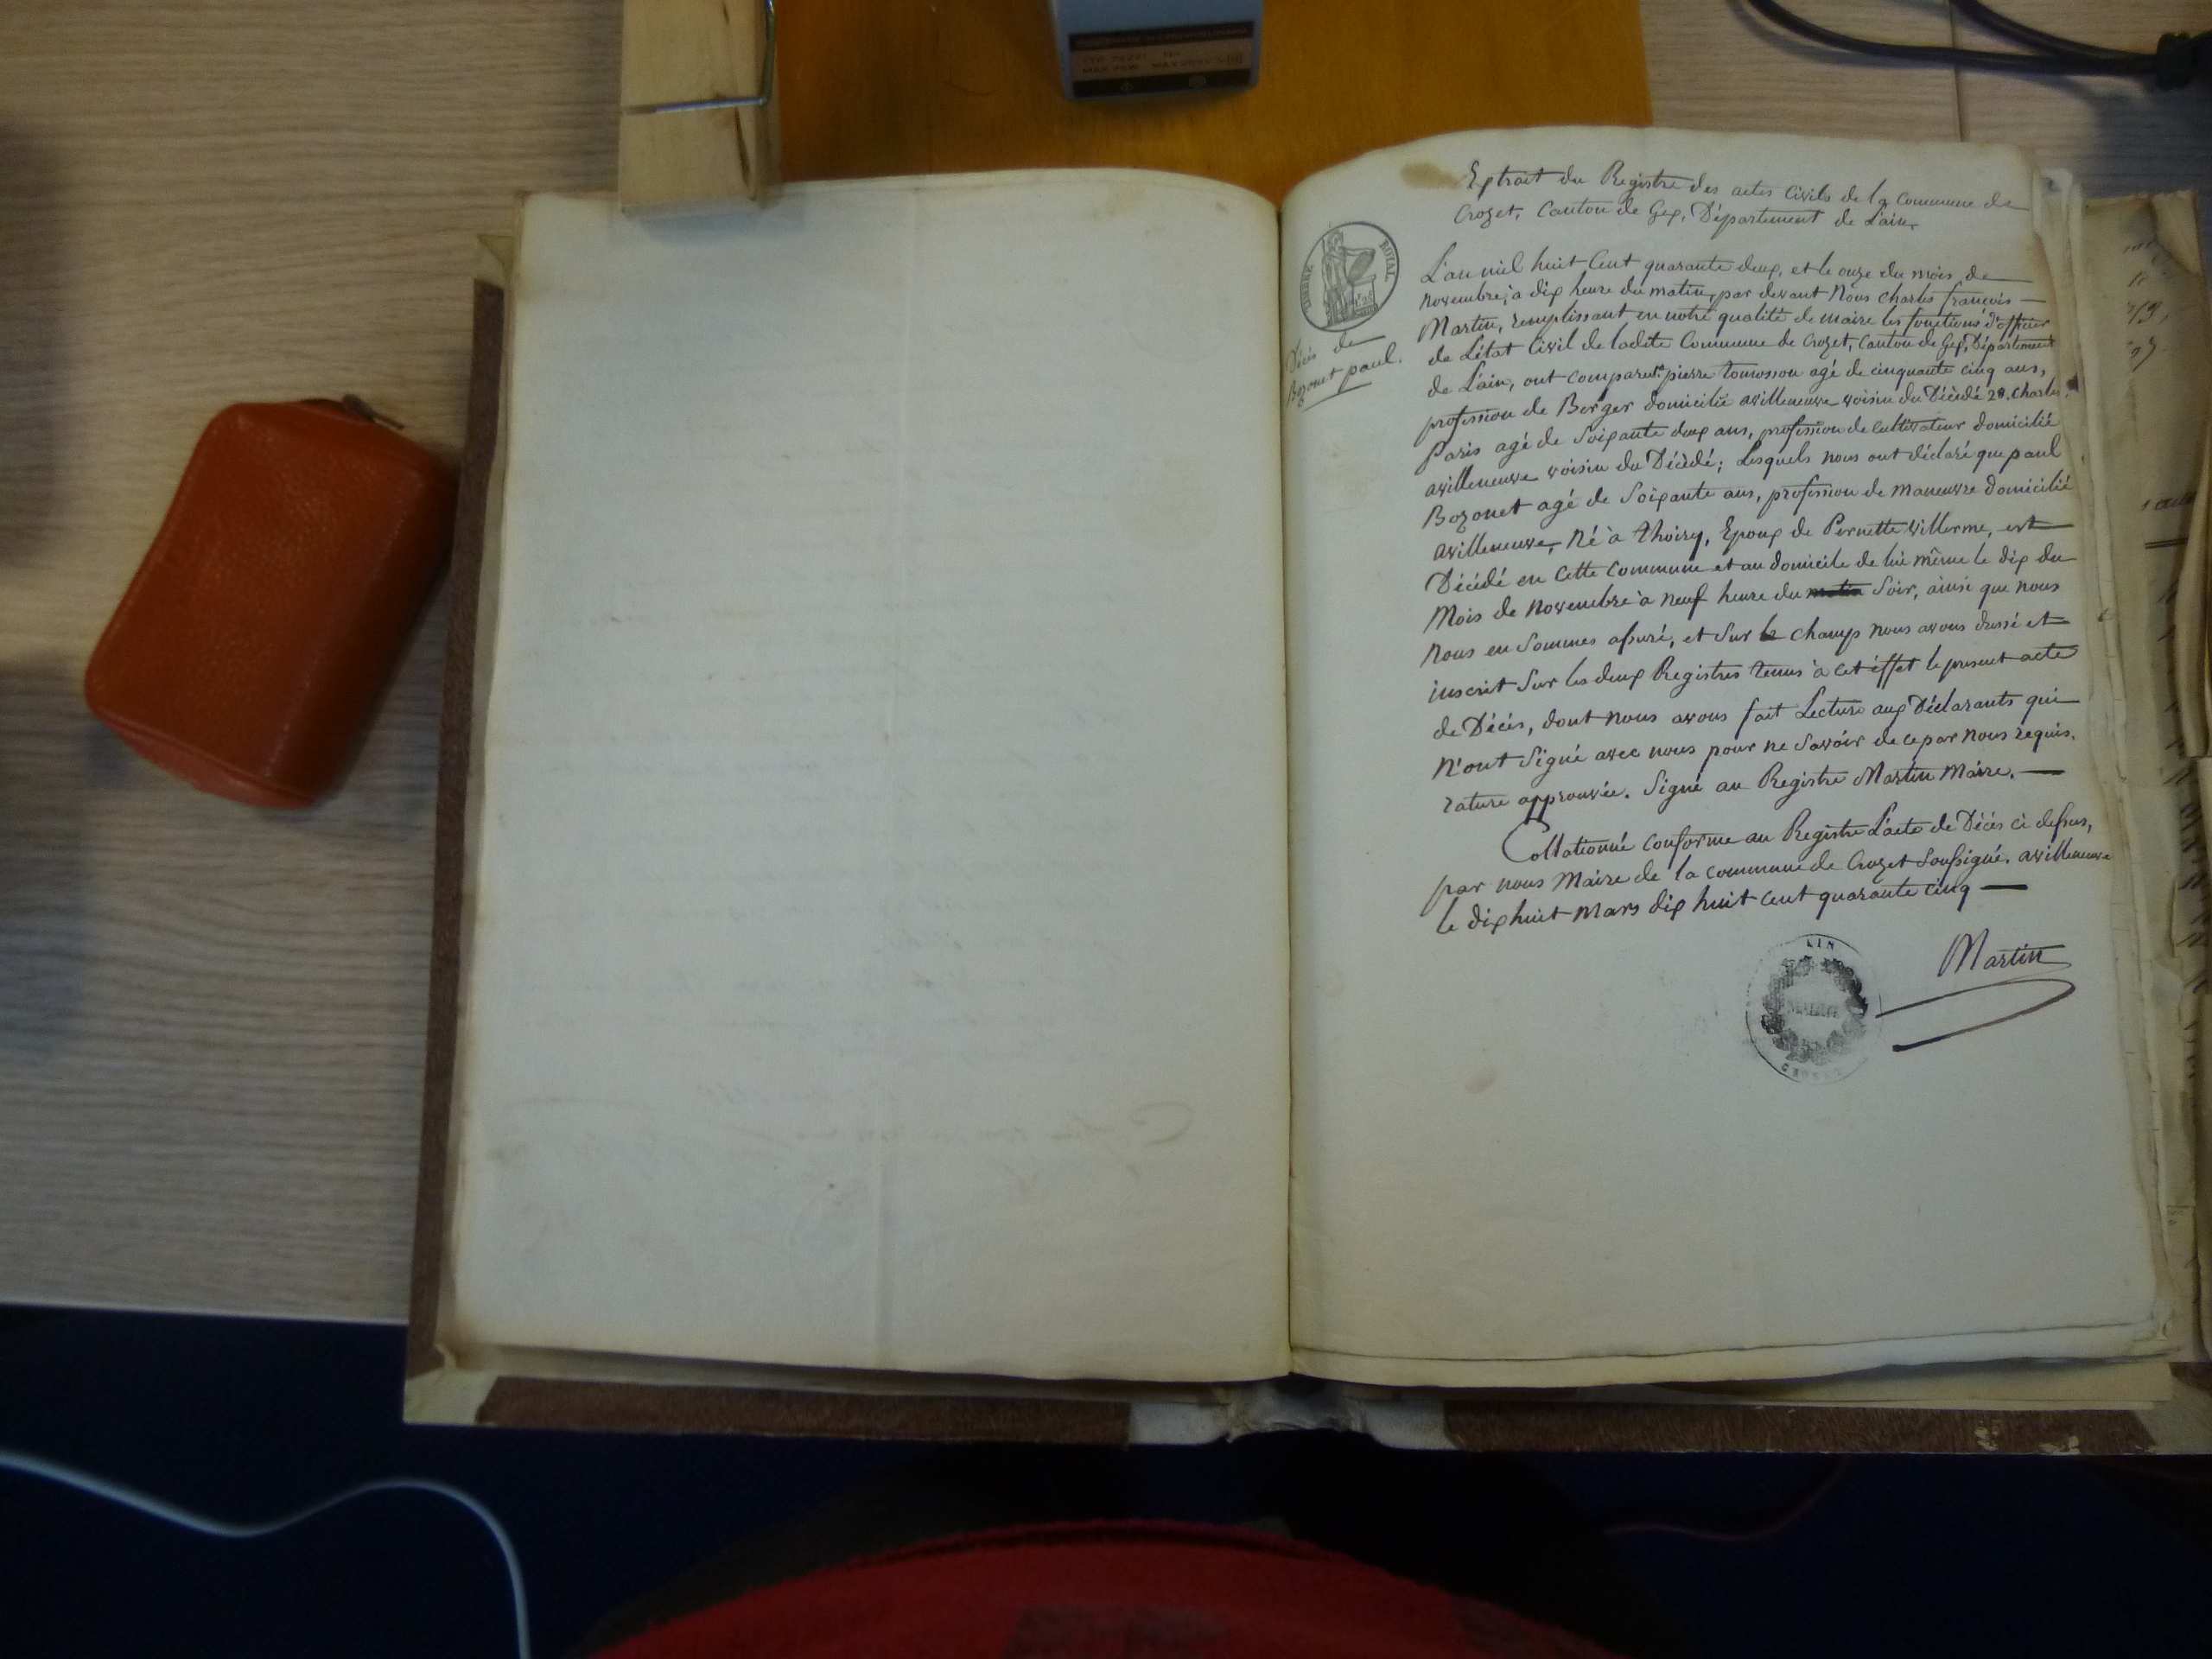 Extrait du Registre des actes Civils de la Commune de
Crozet, Canton de Gex, Département de L'ain,
TIMBRE ROYAL
Décès de
Bozonet paul.
L'an mil huit Cent quarante deux, et le onze du mois, de
novembre, à dix heure du matin, par devant Nous Charles françois
Martin, remplissant en notre qualité de maire les fonctions d'officier
de L'état Civil de ladite Commune de Crozet, Canton de Gex, Département
de L'ain, ont comparut 1° pierre agé de cinquante cinq ans,
profession de Berger domicilié avilleneuve voisin du Décédé 2°. Charles
Paris agé de Soixante deux ans, profession de Cultivateur domicilié
avilleneuve voisin du Décédé; Lesquels nous ont déclaré que paul
Bozonet agé de Soixante ans, profession de maneuvre domicilié
avilleneuve, Né à thoiry, Epoux de Pernette Villerme, est
Décédé en cette commune et au domicile de lui même le dix du
Mois de Novembre à neuf heure du matin Soir, ainsi que nous
nous en Sommes assuré, et Sur le champ nous avons dressé et
inscrit Sur les deux Registres tenus à cet éffet le present acte
de Décès, dont nous avons fait Lecture aux Déclarants qui
N'ont Signé avec nous pour ne Savoir de ce par nous requis.
rature approuvée. Signé au Registre Martin Maire.
Collationné conforme au Registre L'acte de Décès ci dessus,
par nous Maire de la commune de Crozet Soussigné. avilleneuve
le dix huit Mars dix huit Cent quarante cinq
Martin
AIN
MAIRIE
CROZET